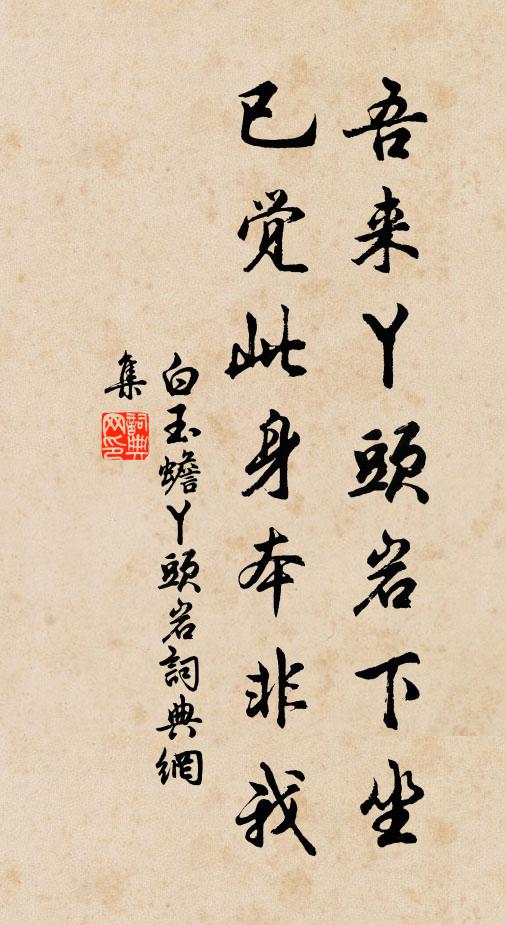 吾来丫頭岩下坐
已觉此身本非我
白玉蟾丫頭岩詞典網
集
詞典
网印